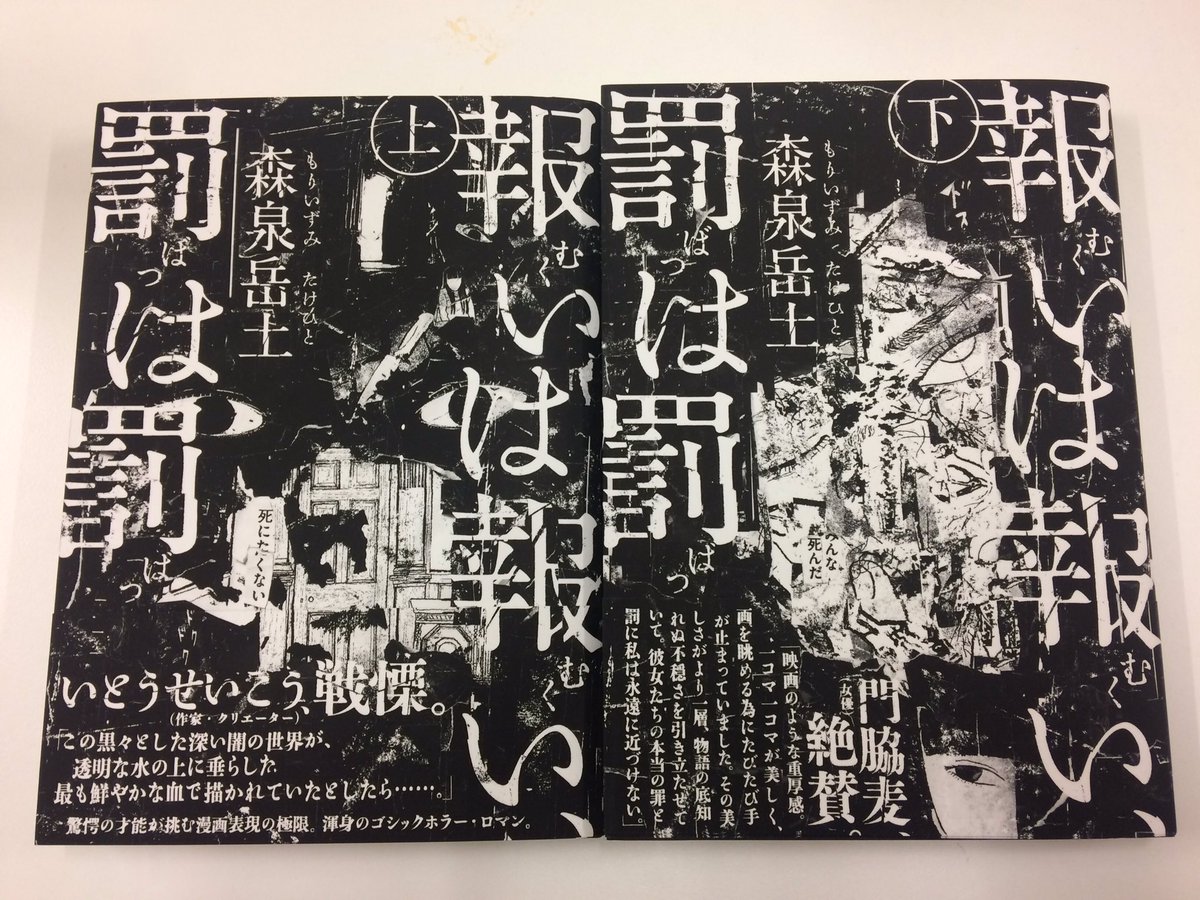 報いは報い、
むく
むく
罰は罰
ばつ
ばつ
上
森泉岳土
もりいずみ たけひと
死にたくない
いとうせいこう、戦慄。
(作家・クリエーター)
「この黒々とした深い闇の世界が、
透明な水の上に垂らした
最も鮮やかな血で描かれていたとしたら……。」
驚愕の才能が挑む漫画表現の極限。渾身のゴシックホラー・ロマン。
報いは報い、
むく
むく
罰は罰
ばつ
ばつ
下
森泉岳土
もりいずみ たけひと
んな
死んだ
門脇麦、
女優
絶賛。
「映画のような重厚感。
一コマ一コマが美しく、
画を眺める為にたびたび手
が止まっていました。その美
しさがより一層、物語の底知
れぬ不穏さを引き立たせて
いて。彼女たちの本当の罪と
罰に私は永遠に近づけない。」